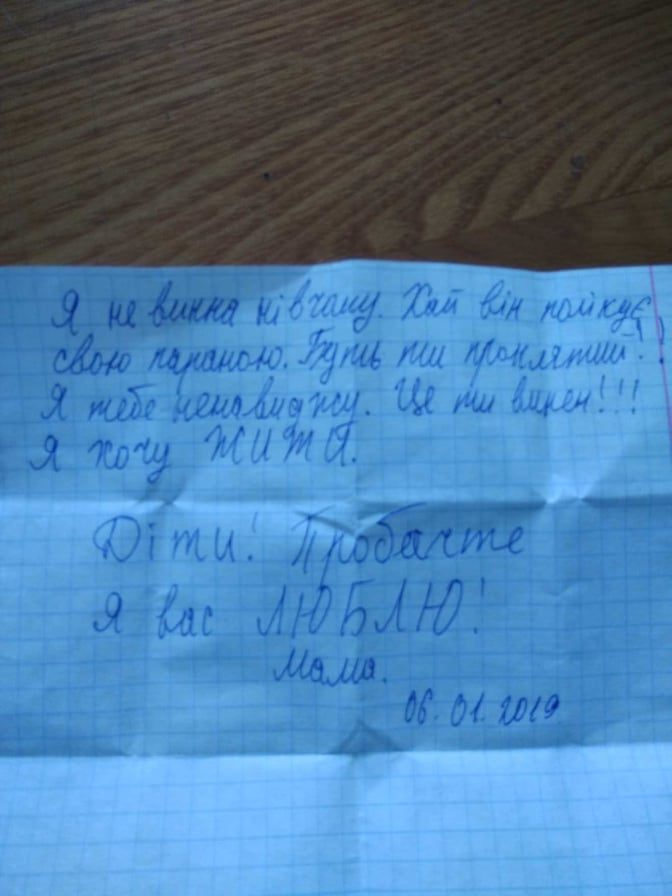 Я не винна нівчому. Хай він полікує
свою параною. Будь ти проклятий!!
Я тебе ненавиджу. Це ти винен!!!
Я хочу ЖИТИ.
Діти! Пробачте
Я вас ЛЮБЛЮ!
Мама.
06.01.2019